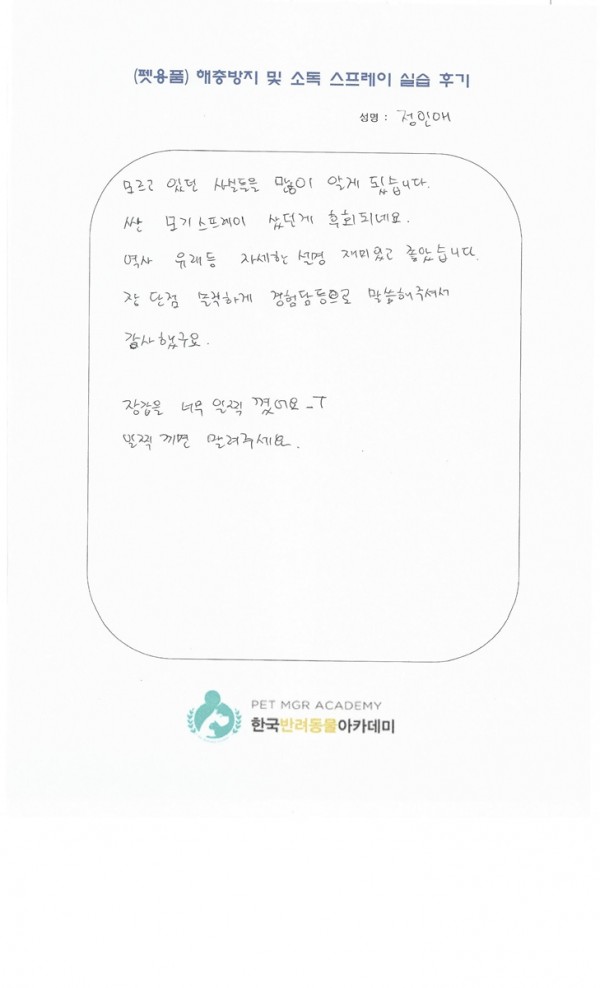 (펫용품) 해충방지 및 소독 스프레이 실습 후기
성명 : 정인애
모르고 있던 사실들을 많이 알게 됐습니다.
싼 모기스프레이 샀던게 후회되네요.
역사 유래등 자세한 설명 재미있고 좋았습니다.
장 단점 솔직하게 경험담등으로 말씀해주셔서
감사했구요.
장갑을 너무 일찍 꼈어요 ㅜㅜ
일찍 끼면 말려주세요.
PET MGR ACADEMY
한국반려동물아카데미